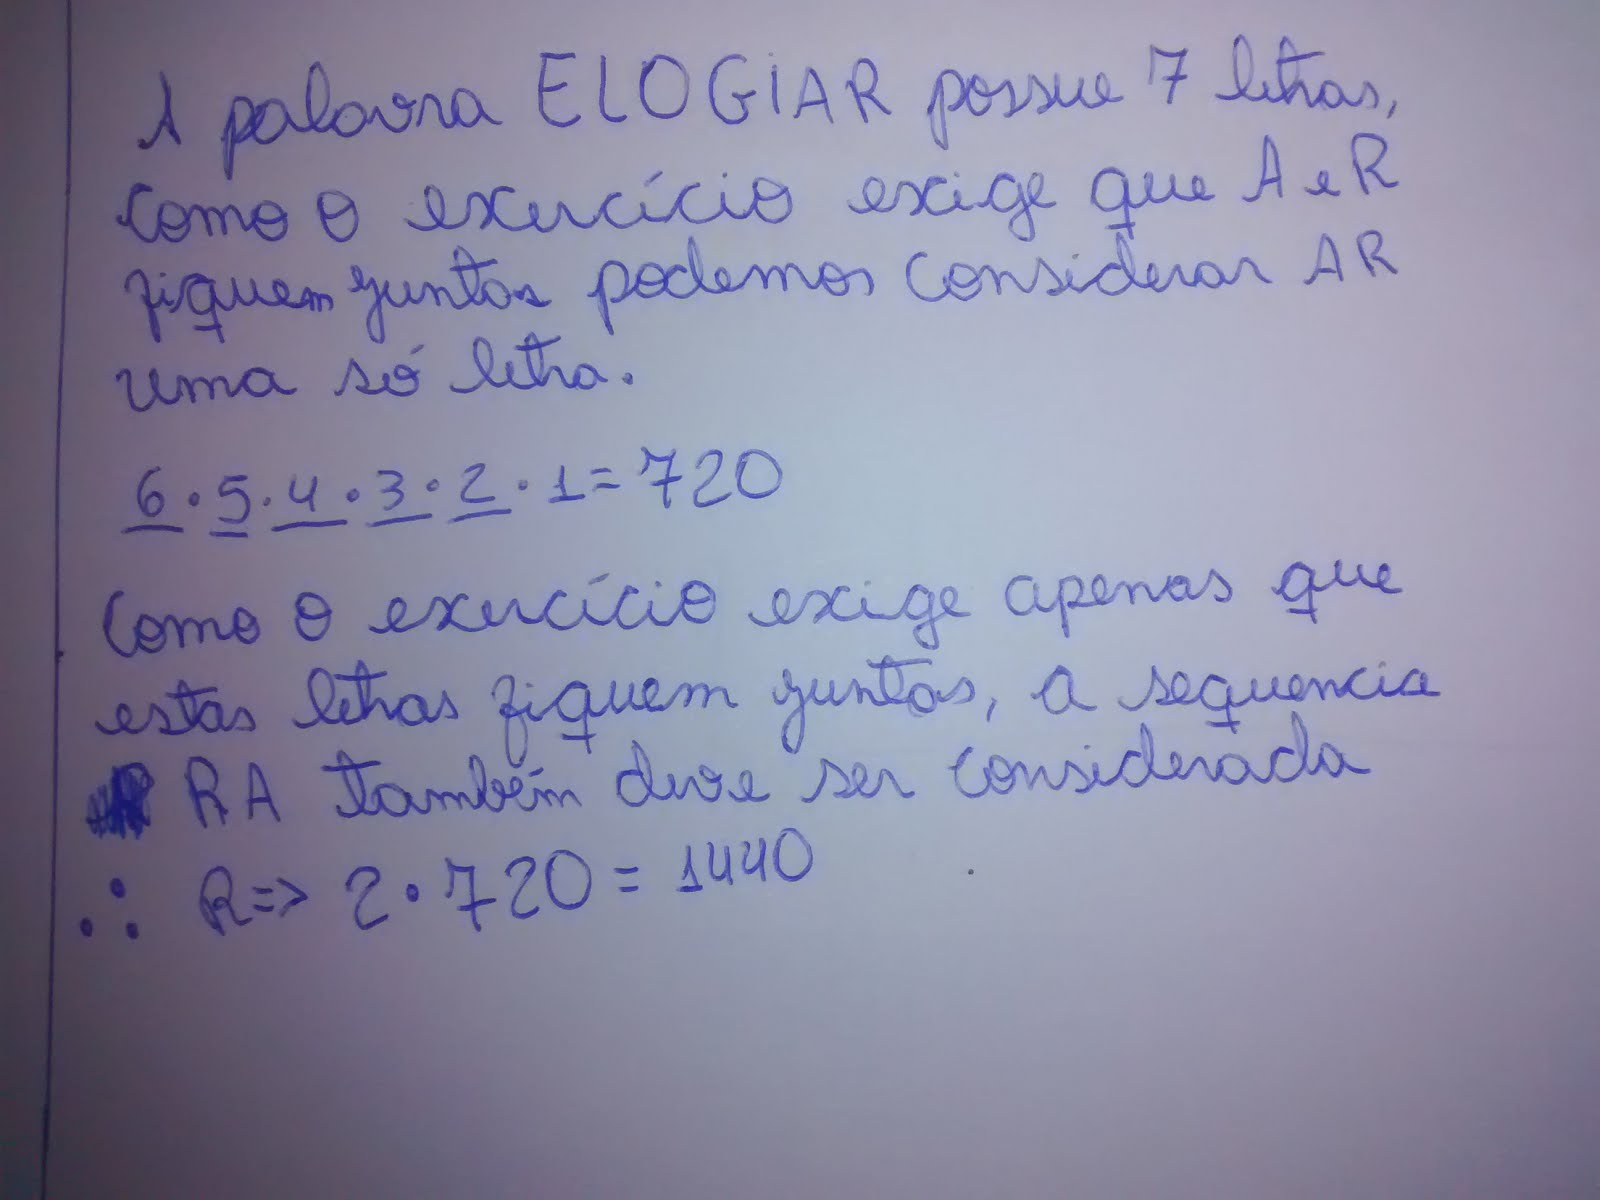 A palavra ELOGIAR possue 7 letras,
como o exercício exige que A e R
fiquem juntas podemos considerar AR
uma só letra.
6 · 5 · 4 · 3 · 2 · 1 = 720
Como o exercício exige apenas que
estas letras fiquem juntas, a sequencia
RA também deve ser considerada
∴ R => 2 · 720 = 1440